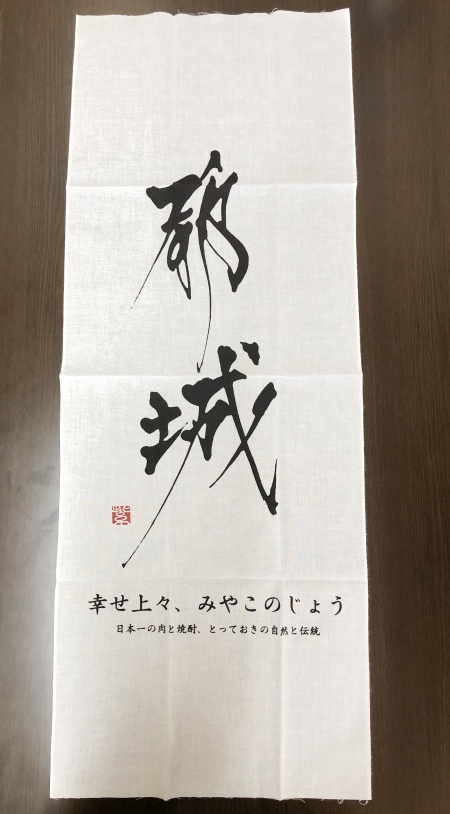 都城
幸せ上々、みやこのじょう
日本一の肉と焼酎、とっておきの自然と伝統